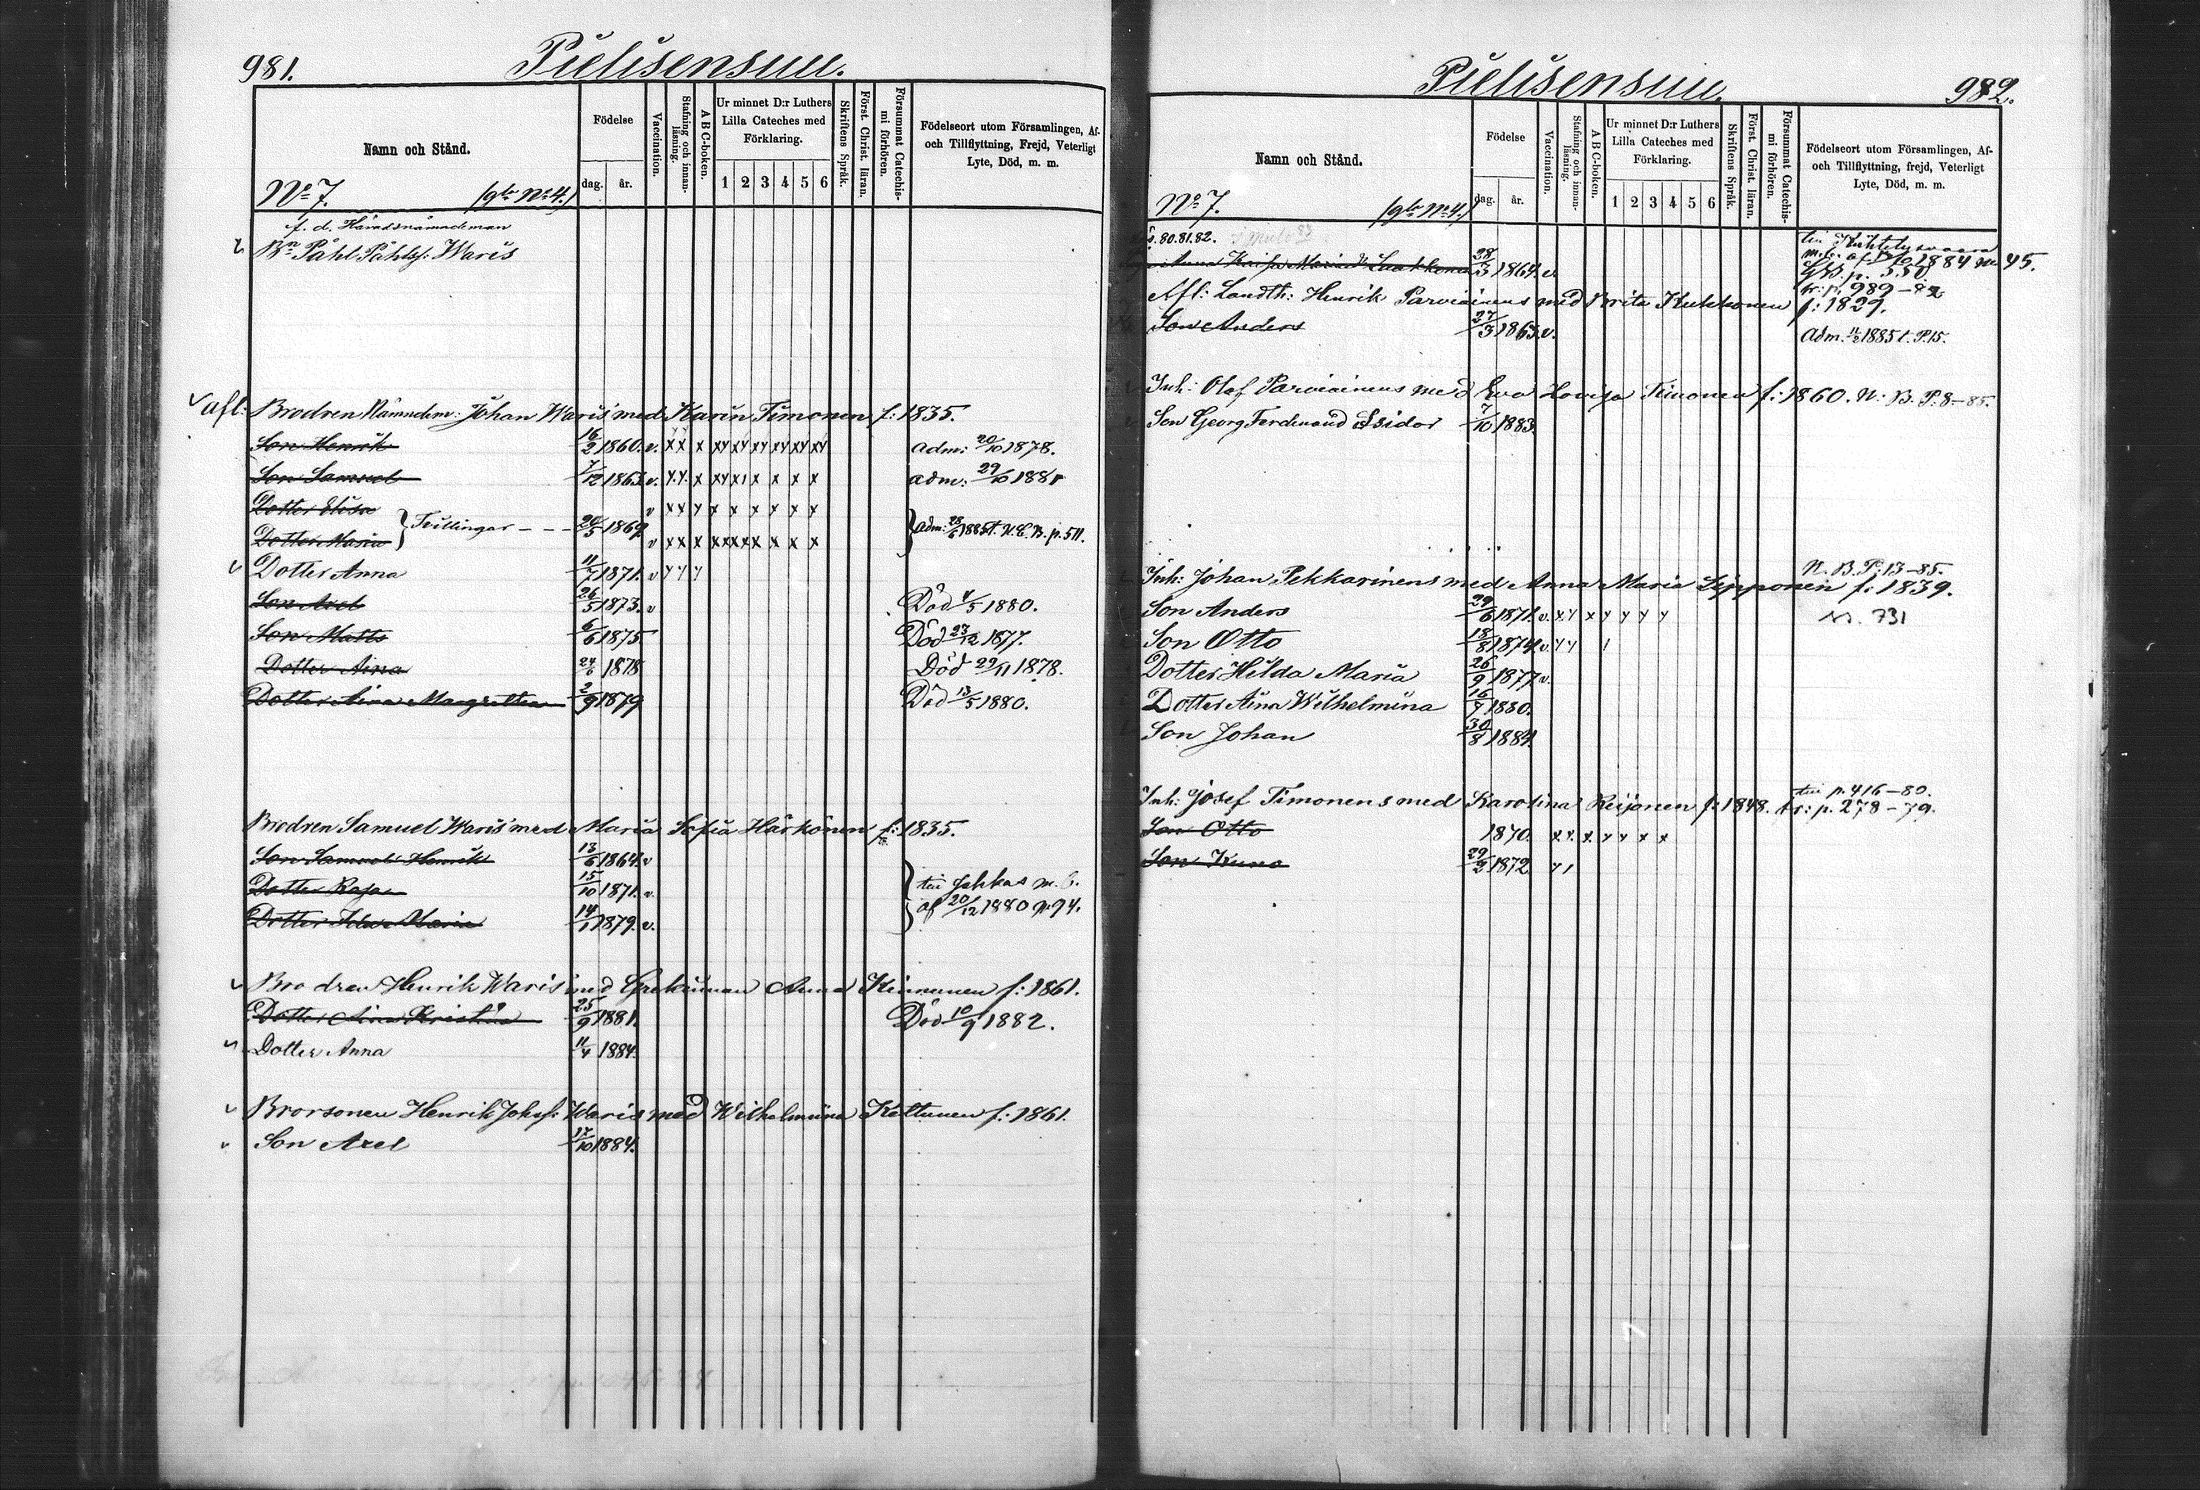 981.
Pielisensuu.
Namn och Stånd.
Födelse
dag. år.
Vaccination.
Stafning och innanläsning.
A B C-boken.
Ur minnet D:r Luthers Lilla Cateches med Förklaring.
1 2 3 4 5 6
Skriftens Språk.
Först. Christ. läran.
Försummat Catechismi förhören.
Födelseort utom Församlingen, Af- och Tillflyttning, Frejd, Veterligt Lyte, Död, m. m.
No 7. (gla No 4.)
f. d. Häradsnämndeman
Bn Påhl Påhlss: Waris
afl: Brodren Nämndem: Johan Waris med Karin Timonen f: 1835.
Son Henrik 16/2 1860. v. x x x xy xy xy xy xy xy adm: 20/10 1878.
Son Samuel 7/12 1863. v. adm: 29/10 1881
Dotter Elisa v x x y x x x x x x
Tvillingar - - - 20/5 1869 adm: 28/6 1885 t. N. C. B. p. 511.
Dotter Maria v x x x x x x x x x
Dotter Anna 11/7 1871. v y y y
Son Axel 26/5 1873. v Död 4/5 1880.
Son Matts 6/6 1875 Död 27/12 1877.
Dotter Aina 24/6 1878 Död 29/11 1878.
Dotter Aina Margretha 2/9 1879 Död 13/5 1880.
Brodren Samuel Waris med Maria Sofia Härkönen f: 1835.
Son Samuel Henrik 13/6 1864. v
Dotter Kajsa 15/10 1871. v. till Jakkas
Dotter Maria 14/1 1879. v. af 20/12 1880 N. 94.
Brodren Henrik Waris med Grekiuman Anna Kinnunen f: 1861.
Dotter Aina Kristina 25/9 1881. Död 10/9 1882.
Dotter Anna 11/4 1884.
Brorsonen Henrik Johss: Waris med Wilhelmina Kettunen f: 1861.
Son Axel 17/10 1884.
Pielisensuu. 982.
Namn och Stånd.
Födelse
dag. år.
Vaccination.
Stafning och innanläsning.
A B C-boken.
Ur minnet D:r Luthers Lilla Cateches med Förklaring.
1 2 3 4 5 6
Skriftens Språk.
Först. Christ. läran.
Försummat Catechismi förhören.
Födelseort utom Församlingen, Af- och Tillflyttning, frejd, Veterligt Lyte, Död, m. m.
No 7. (gla No 4.)
80. 81. 82.
Anna Kaisa Laakkonen 28/3 1864. v. 1884 N. 45.
p. 989-82
Afl: Landth: Henrik Parviainens med Brita Kukkonen f: 1829.
Son Anders 27/3 1863. v. Adm. 1885 t. P. 15.
Inh: Olof Parviainens med Eva Lovisa Timonen f: 1860. N: B. P: 8-85.
Son Georg Ferdinand Isidor 7/10 1883.
N. B. P: 13-85.
Inh: Johan Pekkarinens med Anna Maria Lipponen f: 1839.
Son Anders 29/6 1871. v. x y x y y y y N. 731
Son Otto 18/8 1874. v. y y 1
Dotter Hilda Maria 26/9 1877 v.
Dotter Aina Wilhelmina 16/7 1880.
Son Johan 30/8 1884.
till p. 416-80.
Inh: Josef Timonens med Karolina Reijonen f: 1848. fr: p. 278-79.
Son Otto 1870. x x. x. y y x x
Son Kuno 29/2 1872 y 1